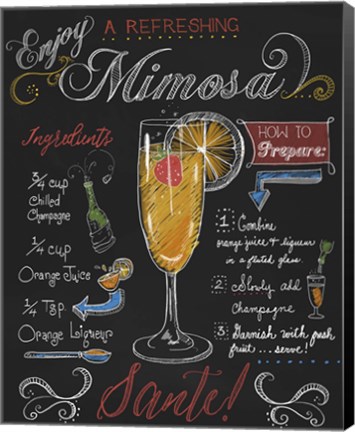 Enjoy
A REFRESHING
Mimosa
Ingredients
3/4 cup
Chilled
Champagne
1/4 cup
Orange Juice
1/4 Tsp
Orange Liqueur
HOW TO
Prepare:
1: Combine
orange juice & liqueur
in a fluted glass.
2: Slowly add
Champagne
3: Garnish with fresh
fruit ... serve!
Sante!